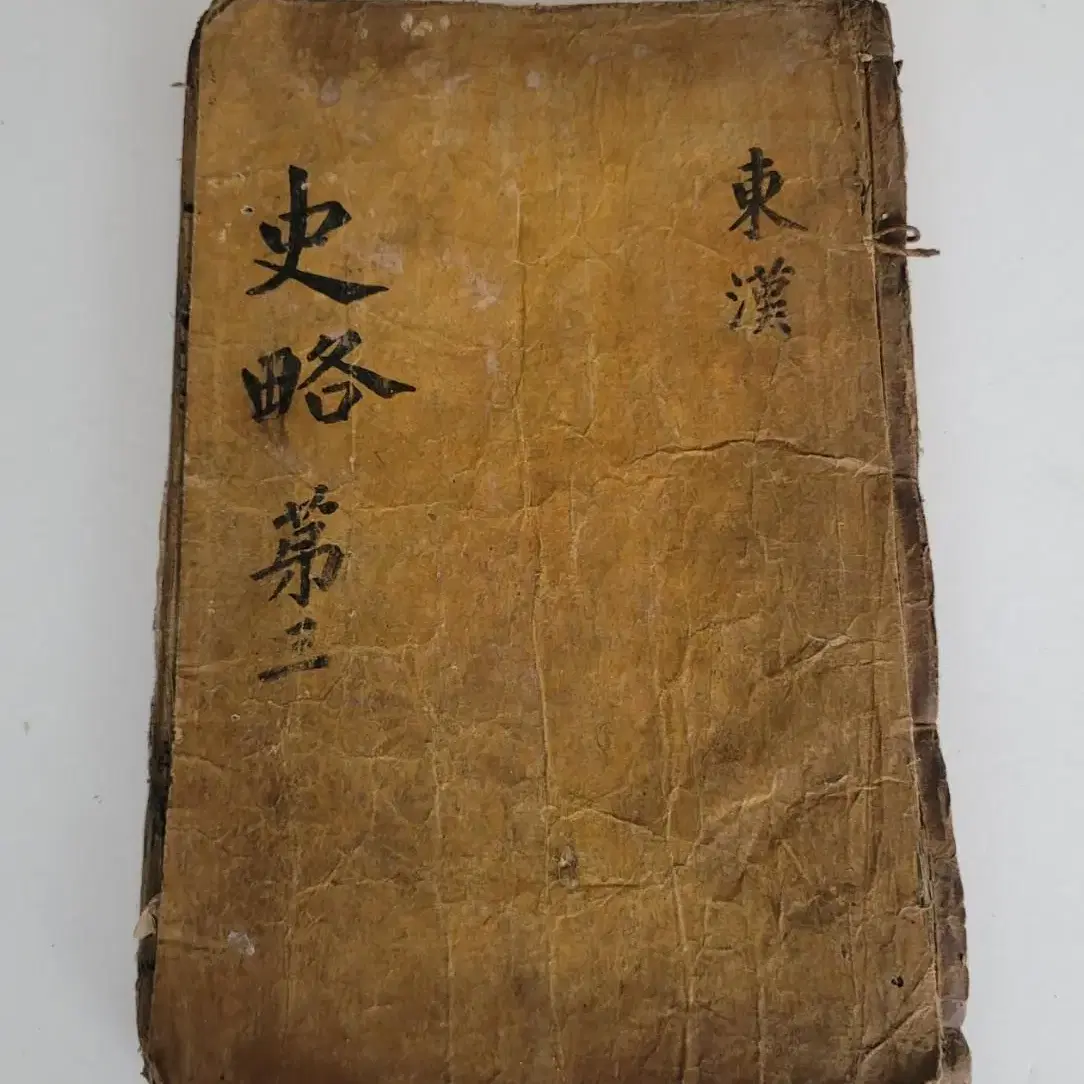 東漢
史略 第三